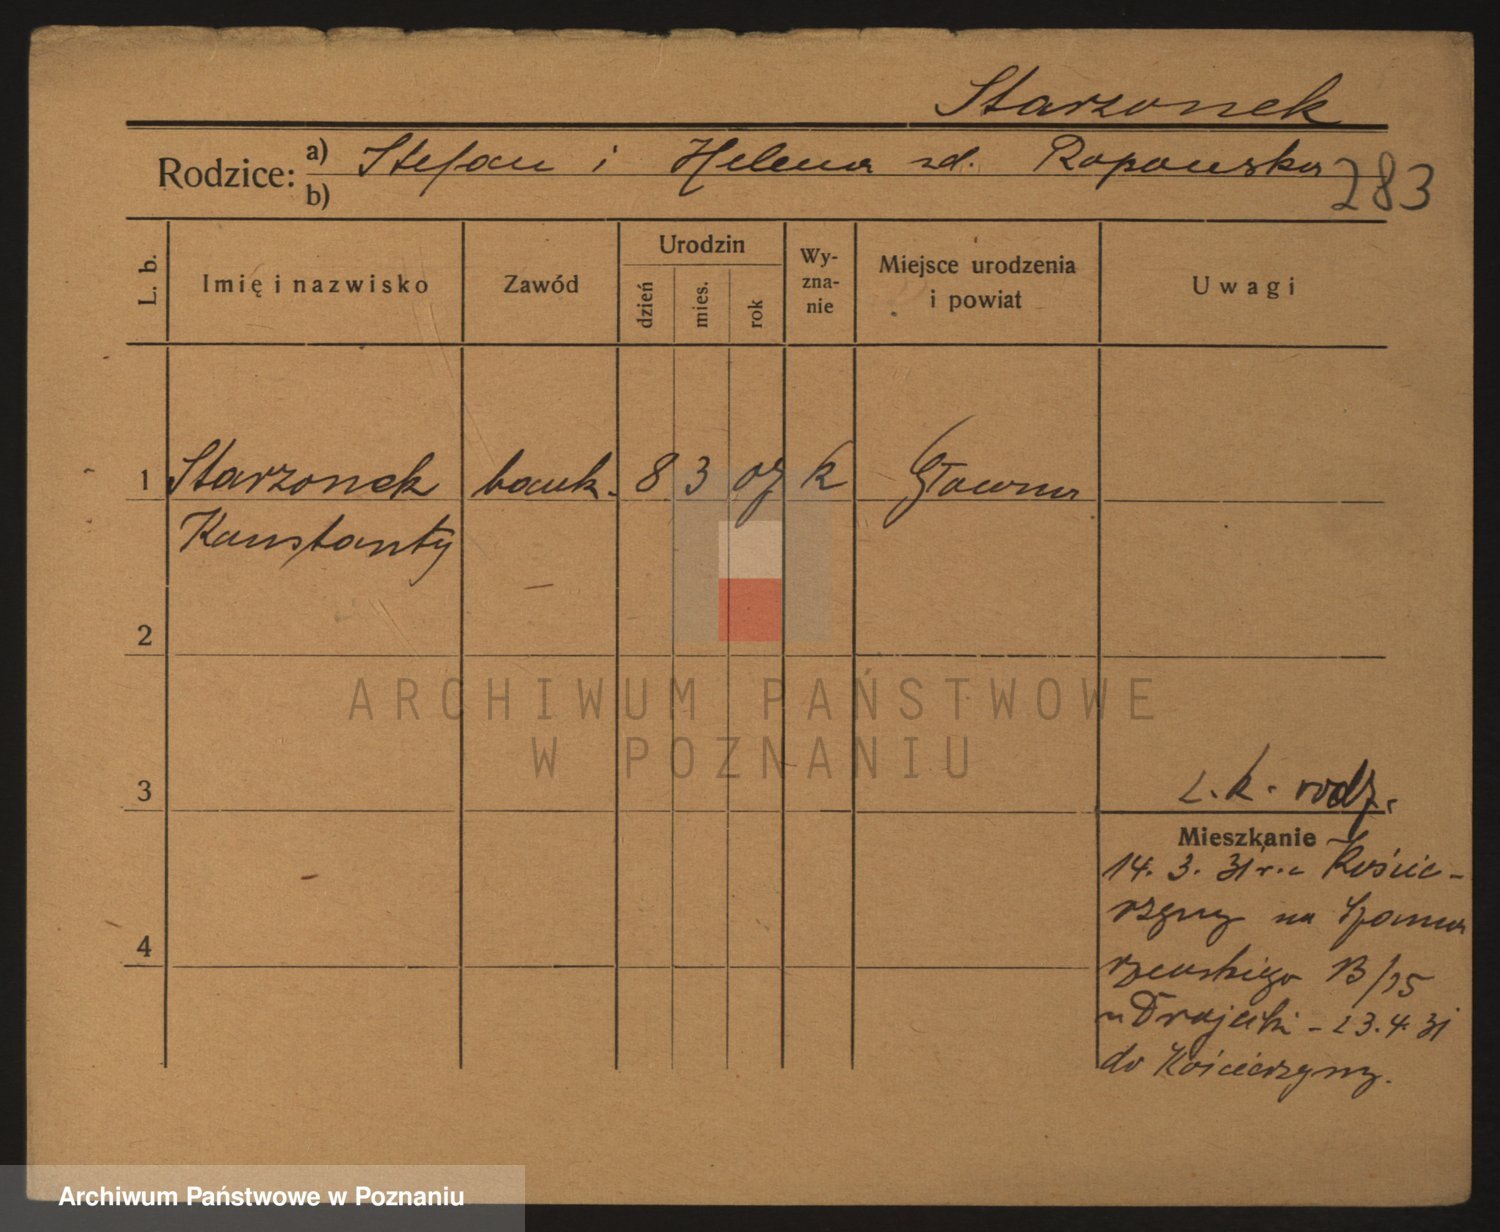 Starzonek
Rodzice: a) Stefan i Helena zd. Ropowska
b)
283
L. b. Imię i nazwisko Zawód Urodzin dzień mies. rok Wy-zna-nie Miejsce urodzenia i powiat Uwagi
1 Starzonek bank. 8 3 07 k Główna
Konstanty
2
ARCHIWUM PAŃSTWOWE
W POZNANIU
3
k. rodz.
Mieszkanie
14. 3. 31 r. z Koście-
rzyny na
13/15
u - 23.4.31
4
do Kościerzyny.
Archiwum Państwowe w Poznaniu